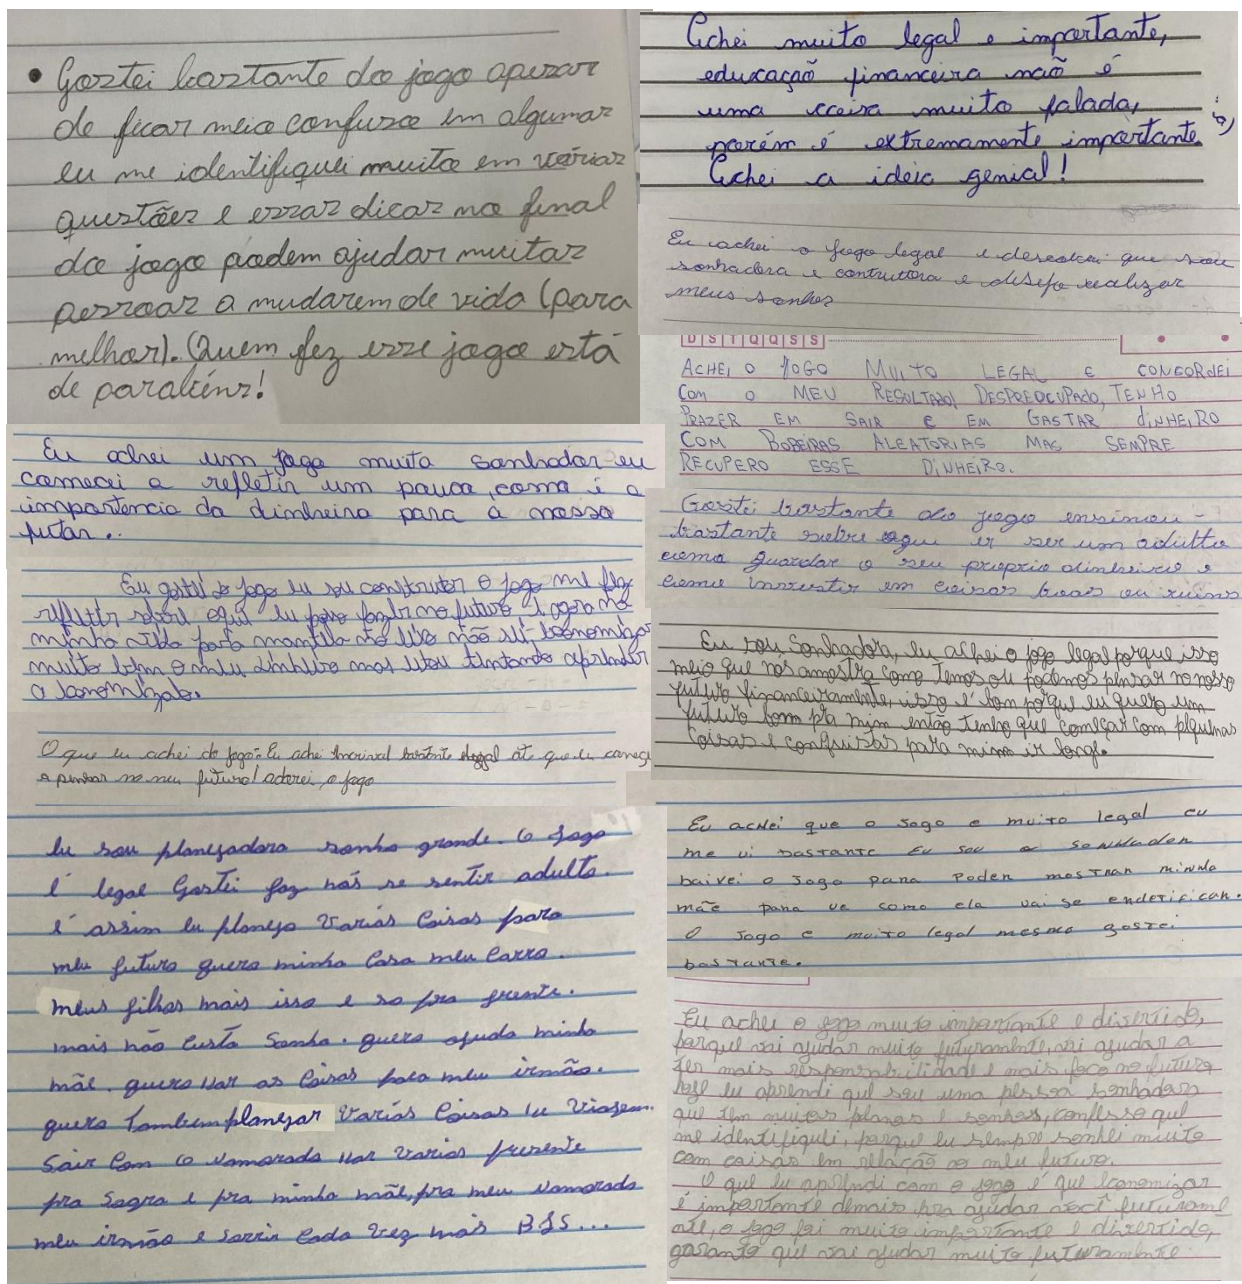 • Gostei bastante do jogo apesar
de ficar meio confuso em algumas
eu me identifiquei muito em várias
questões e essas dicas no final
do jogo podem ajudar muitas
pessoas a mudarem de vida (para
melhor). Quem fez esse jogo está
de parabéns!
Eu achei um jogo muito sonhador eu
comecei a refletir um pouco, como é a
importencia do dinheiro para o nosso
futar..
Eu gostei o jogo eu sou construtor o jogo me fez
refletir sobre oque eu posso fazer no futuro e agora na
minha vida para mantela no eixo não sei economizar
muito bem o meu dinheiro mas estou tentando aprender
a economizalo.
O que eu achei do jogo: Eu achei incrivel bastante legal até que eu comecei
a pensar no meu futuro! adorei o jogo
Eu sou planejadora sonho grande. O Jogo
é legal Gostei faz nós se sentir adulto.
é assim eu planejo varias Coisas para
meu futuro quero minha Casa meu Carro.
meus filhos mais isso e so pra frente.
mais não Custa Sonha. quero ajuda minha
mãe. quero dar as Coisas para meu irmão.
quero Tambem planejar varias Coisas eu viagem.
Sair Com o namorado dar varios presente
pra Sogra e pra minha mãe, pra meu namorado
meu irmão e sorrir Cada vez mais BJS...
Achei muito legal e importante,
educação financeira não é
uma coisa muito falada,
porém é extremamente importante.
Achei a ideia genial!
Eu achei o jogo legal e descobri que sou
sonhadora e contruttora e desejo realizar
meus sonhos
D S T Q Q S S
ACHEI O JOGO MUITO LEGAL E CONCORDEI
COM O MEU RESULTADO! DESPREOCUPADO, TENHO
PRAZER EM SAIR E EM GASTAR DINHEIRO
COM BOBEIRAS ALEATORIAS MAS SEMPRE
RECUPERO ESSE DINHEIRO.
Gostei bastante do jogo ensinou
bastante sobre oque é ser um adulto
como guardar o seu proprio dinheiro e
como investir em coisas boas ou ruins
Eu sou Sonhadora, eu achei o jogo legal porque isso
meio que nos amostra como temos ou podemos pensar no nosso
futuro financeiramente, isso é bom porque eu quero um
futuro bom pra mim então tenho que começar com algumas
coisas e conquistas para mim ir longe.
Eu achei que o jogo e muito legal eu
me vi bastante Eu sou o sonhador
baixei o jogo para poder mostrar minha
mãe para ve como ela vai se endetificar.
O jogo e muito legal mesmo gostei
bastante.
Eu achei o jogo muito importante e divertido,
porque vai ajudar muito futuramente, vai ajudar a
ter mais responsabilidade e mais foco no futuro
hoje eu aprendi que sou uma pessoa sonhadora
que tem muitos planos e sonhos, confesso que
me identifiquei, porque eu sempre sonhei muito
com coisas em relação ao meu futuro.
O que eu aprendi com o jogo é que economizar
é importante demais pra ajudar você futuramente
ate, o jogo foi muito importante e divertido,
garanto que vai ajudar muito futuramente.